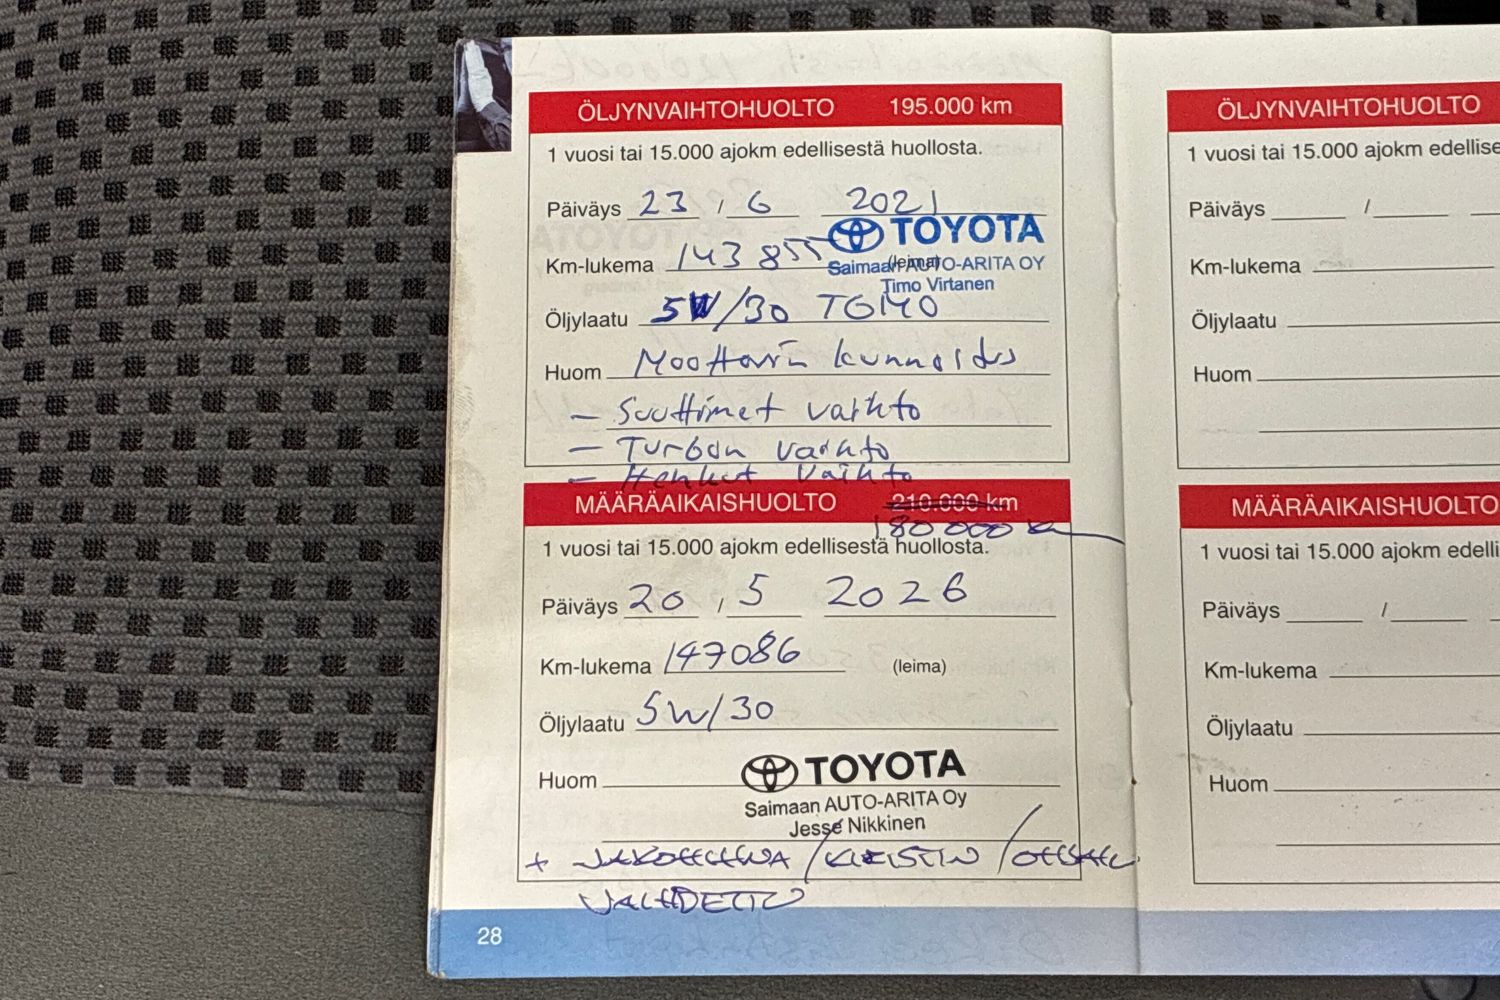 ÖLJYNVAIHTOHUOLTO 195.000 km
1 vuosi tai 15.000 ajokm edellisestä huollosta.
Päiväys 23 / 6 2021
TOYOTA
Km-lukema 143 855 (leima)
Saimaan AUTO-ARITA OY
Timo Virtanen
Öljylaatu 5W/30 TGMO
Huom Moottorin kunnostus
- Suuttimet vaihto
- Turbon vaihto
- Henkut vaihto
MÄÄRÄAIKAISHUOLTO 210.000 km
180 000 km
1 vuosi tai 15.000 ajokm edellisestä huollosta.
Päiväys 20 / 5 2026
Km-lukema 147086 (leima)
Öljylaatu 5W/30
Huom
TOYOTA
Saimaan AUTO-ARITA Oy
Jesse Nikkinen
+ JAKOHIHNA / KIRISTIN /
VAIHDETTU
28
ÖLJYNVAIHTOHUOLTO
1 vuosi tai 15.000 ajokm edellise
Päiväys /
Km-lukema
Öljylaatu
Huom
MÄÄRÄAIKAISHUOLTO
1 vuosi tai 15.000 ajokm edelli
Päiväys /
Km-lukema
Öljylaatu
Huom